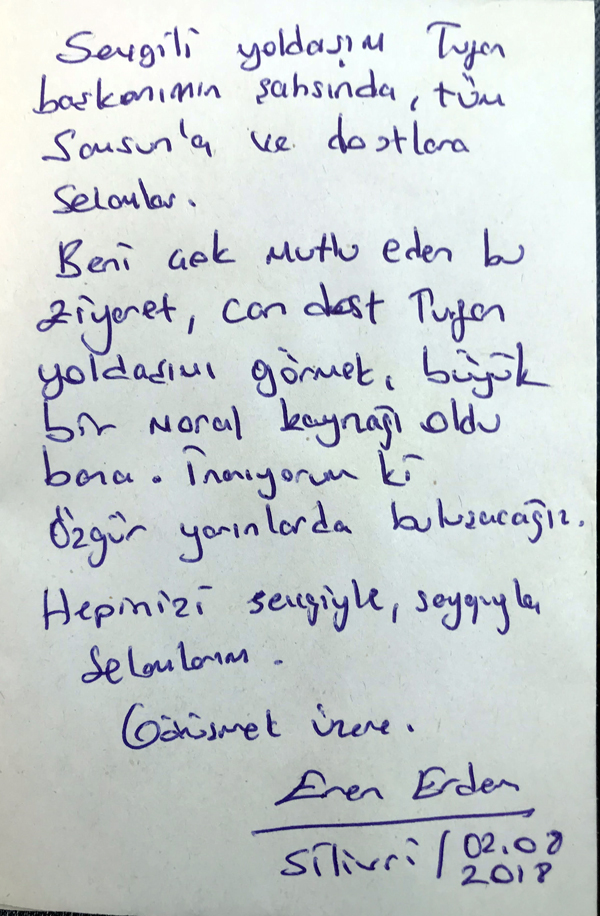 Sevgili yoldaşım Tufan
başkanımın şahsında, tüm
Samsun'a ve dostlara
selamlar.
Beni çok mutlu eden bu
ziyaret, can dost Tufan
yoldaşımı görmek, büyük
bir moral kaynağı oldu
bana. İnanıyorum ki
Özgür yarınlarda buluşacağız.
Hepinizi sevgiyle, saygıyla
selamlarım.
Görüşmek üzere.
Eren Erdem
Silivri / 02.08
2018